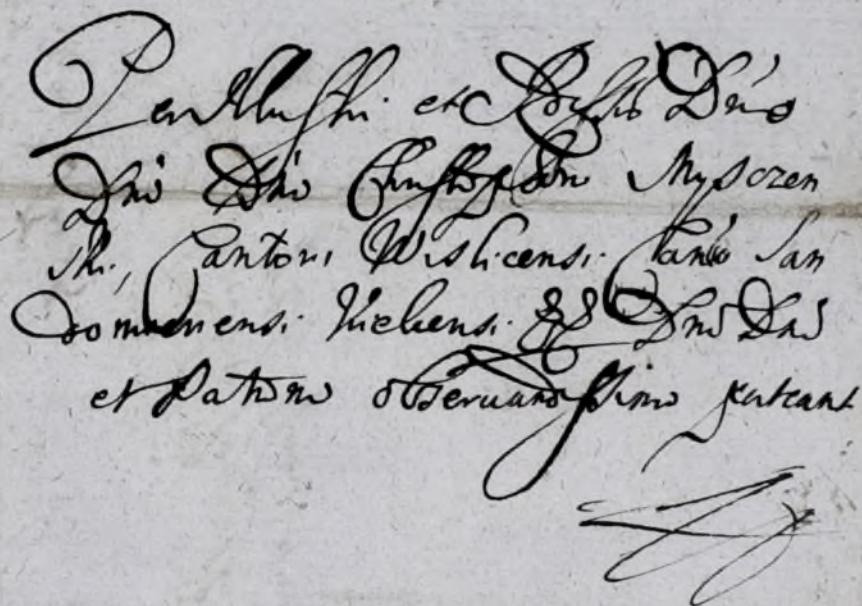 Perillustri et Rndissio Dnō
Dnō Dnō Christophoro Mysczen
ski, Cantori Wislicensi. Canco San
domiriensi. Kielcensi. &&. Dnō Dnō
et Patrono obseruandissimo